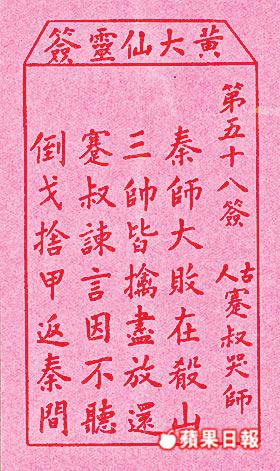 黃大仙靈簽
第五十八簽
古人 蹇叔哭師
秦師大敗在殽山
三帥皆擒盡放還
蹇叔諫言因不聽
倒戈捨甲返秦間
蘋果日報